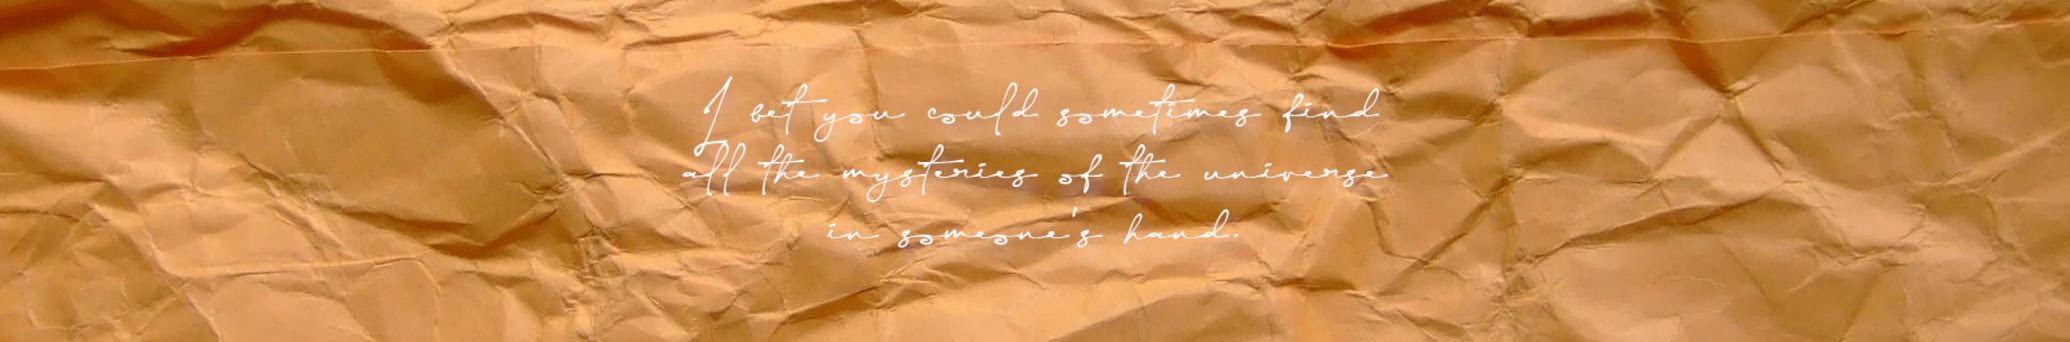 I bet you could sometimes find
all the mysteries of the universe
in someone's hand.